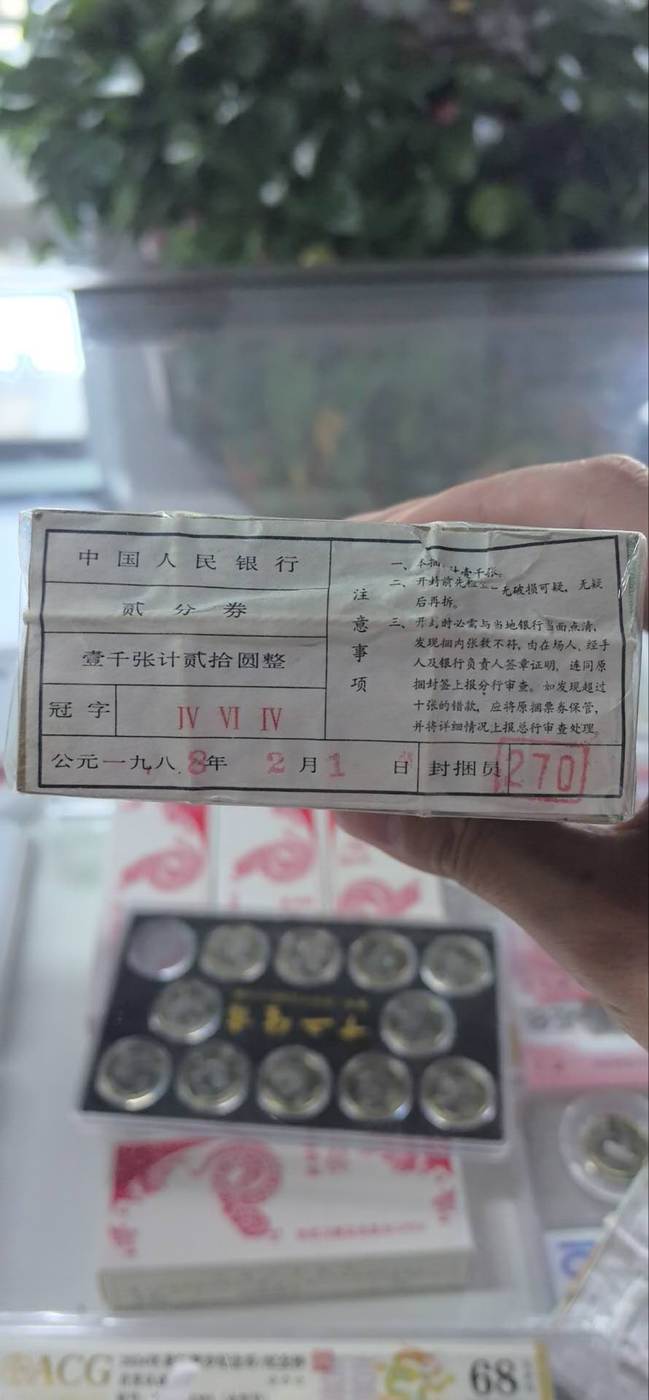 中国人民银行
贰分券
壹千张计贰拾圆整
冠字 IV VI IV
公元一九八8年 2月1日 封捆员 270
注意事项
一、本捆 壹千张。
二、开封前先检 无破损可疑，无疑
后再拆。
三、开封时必需与当地银行当面点清，
发现捆内张数不符，由在场人、经手
人及银行负责人签章证明，连同原
捆封签上报分行审查。如发现超过
十张的错款，应将原捆票券保管，
并将详细情况上报总行审查处理。
ACG
68